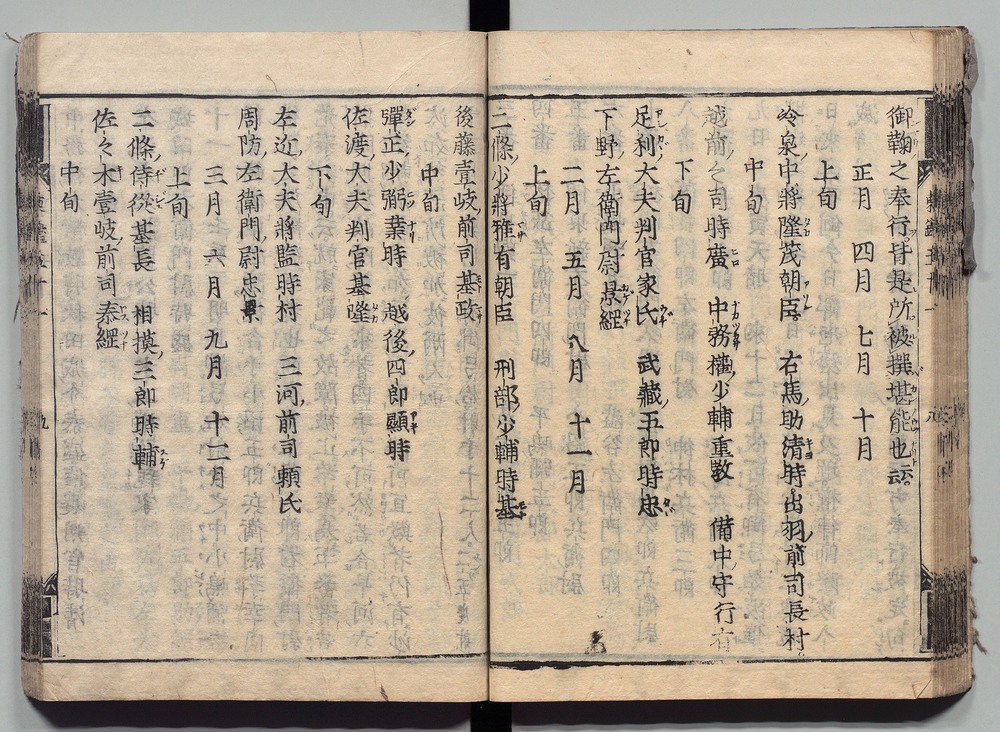 御鞠之奉行皆是所被撰堪能也云云
正月　四月　七月　十月
上旬
冷泉中將隆茂朝臣　右馬助清時出羽前司長村
中旬
越前々司時廣　中務權少輔重教　備中守行有
下旬
足利大夫判官家氏　武藏五郎時忠
下野左衛門尉景經
二月　五月　八月　十一月
上旬
二條少將雅有朝臣　刑部少輔時基
後藤壹岐前司基政
中旬
彈正少弼業時　越後四郎顯時
佐渡大夫判官基隆
下旬
左近大夫將監時村　三河前司頼氏
周防左衛門尉忠景
三月　六月　九月　十二月
上旬
二條侍從基長　相摸三郎時輔
佐々木壹岐前司泰經
中旬